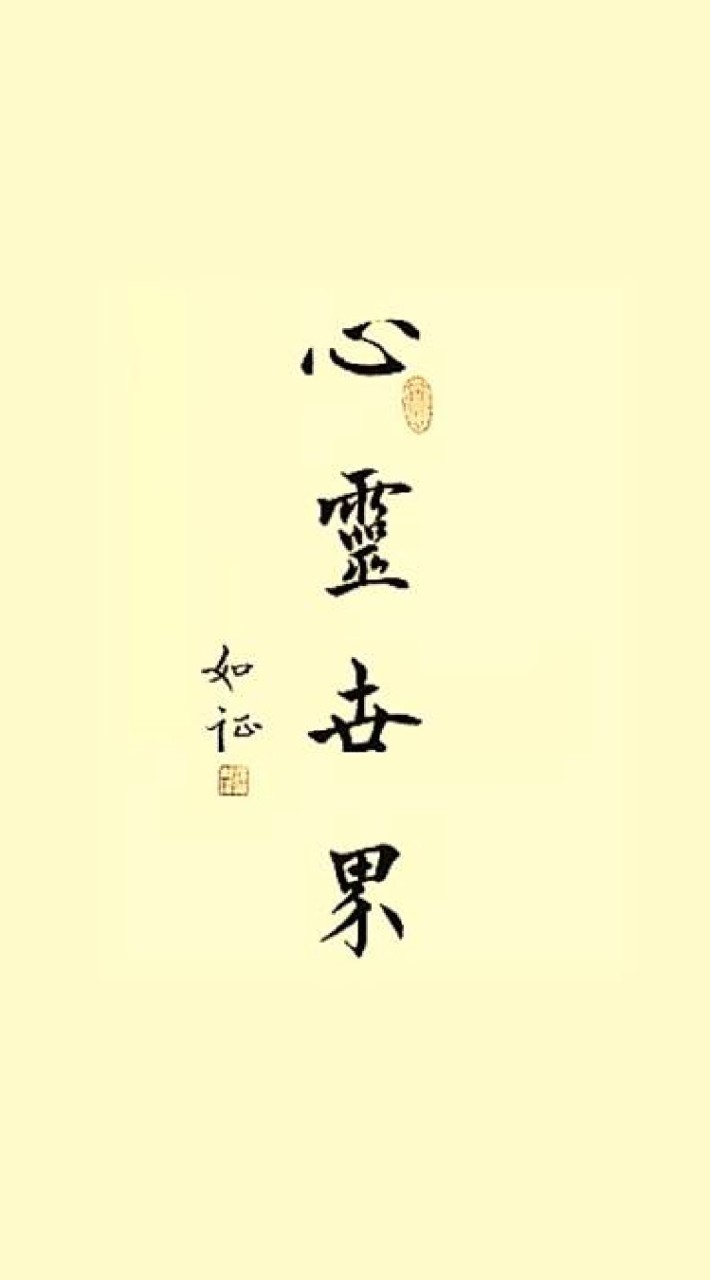 心靈世界
如证